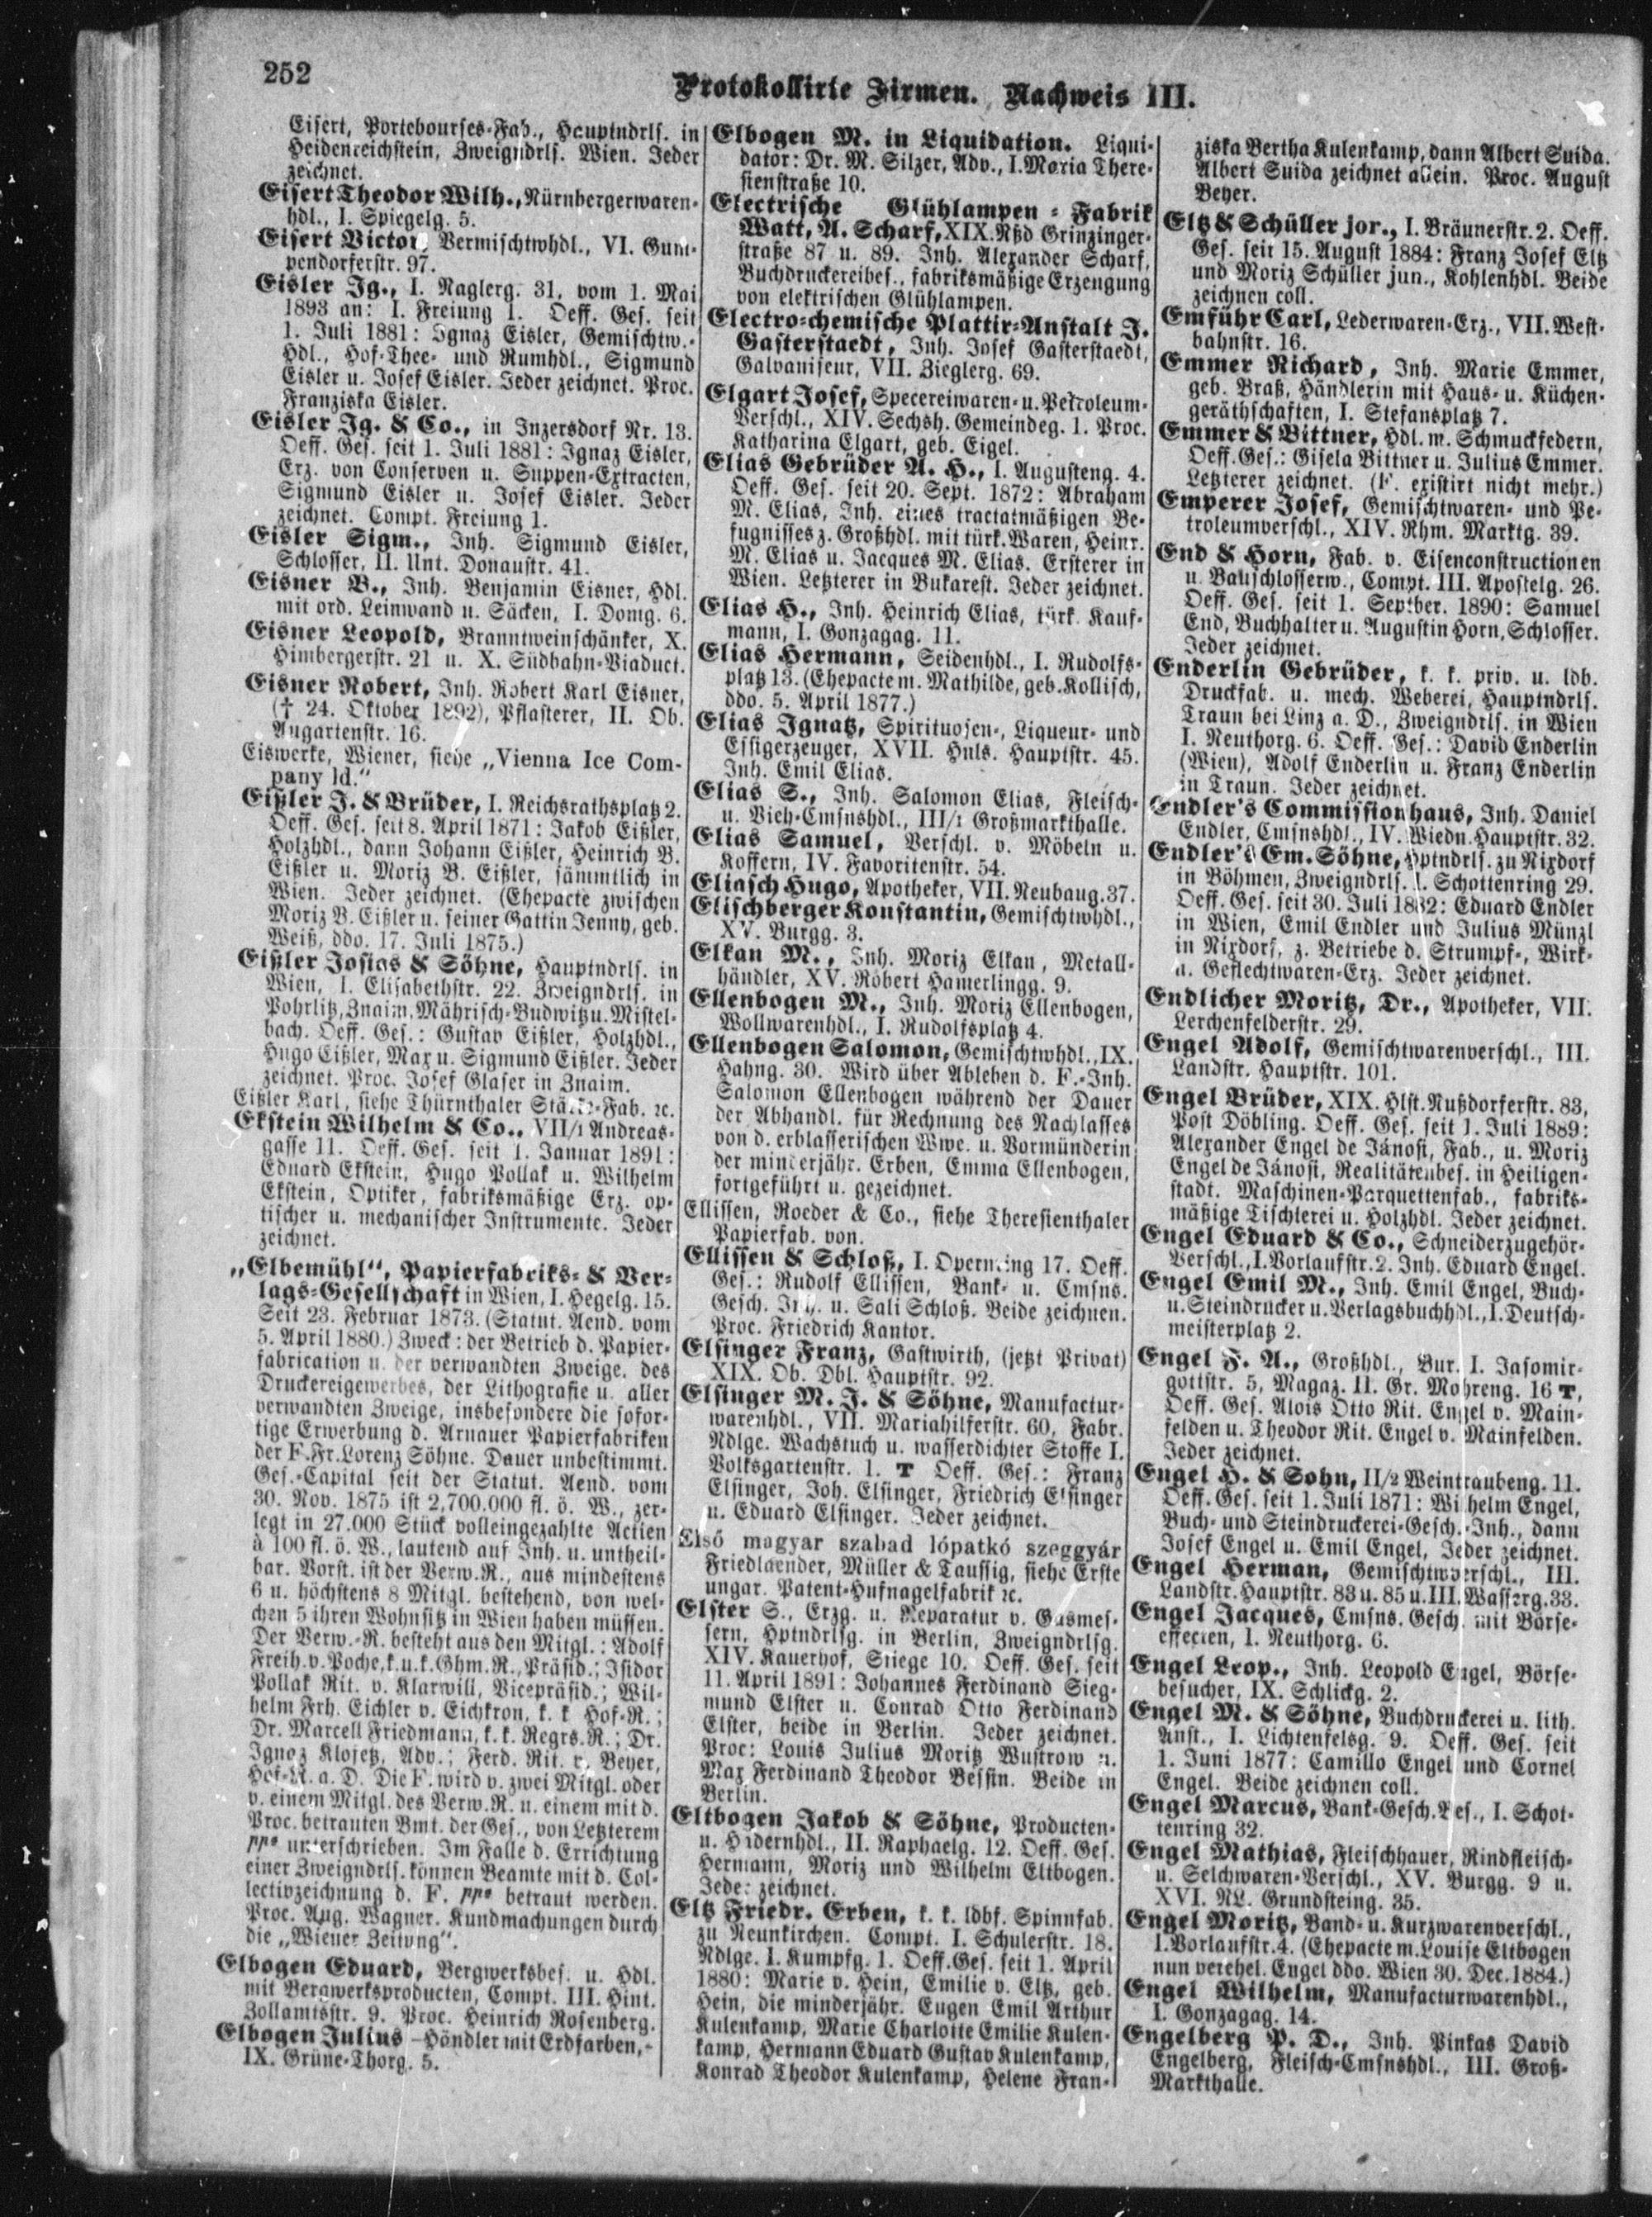 252
Protokollirte Firmen. Nachweis III.
Eisert, Portebourses-Fab., Hauptndrls. in
Heidenreichstein, Zweigndrls. Wien. Jeder
zeichnet.
Eisert Theodor Wilh., Nürnbergerwaren-
hdl., I. Spiegelg. 5.
Eisert Victor, Vermischtwhdl., VI. Gum-
pendorferstr. 97.
Eisler Ig., I. Naglerg. 31, vom 1. Mai
1893 an: I. Freiung 1. Oeff. Ges. seit
1. Juli 1881: Ignaz Eisler, Gemischtw.-
Hdl., Hof-Thee- und Rumhdl., Sigmund
Eisler u. Josef Eisler. Jeder zeichnet. Proc.
Franziska Eisler.
Eisler Ig. & Co., in Inzersdorf Nr. 13.
Oeff. Ges. seit 1. Juli 1881: Ignaz Eisler,
Erz. von Conserven u. Suppen-Extracten,
Sigmund Eisler u. Josef Eisler. Jeder
zeichnet. Compt. Freiung 1.
Eisler Sigm., Inh. Sigmund Eisler,
Schlosser, II. Unt. Donaustr. 41.
Eisner B., Inh. Benjamin Eisner, Hdl.
mit ord. Leinwand u. Säcken, I. Domg. 6.
Eisner Leopold, Branntweinschänker, X.
Himbergerstr. 21 u. X. Südbahn-Viaduct.
Eisner Robert, Inh. Robert Karl Eisner,
(† 24. Oktober 1892), Pflasterer, II. Ob.
Augartenstr. 16.
Eiswerke, Wiener, siehe „Vienna Ice Com-
pany ld.“
Eißler J. & Brüder, I. Reichsrathsplatz 2.
Oeff. Ges. seit 8. April 1871: Jakob Eißler,
Holzhdl., dann Johann Eißler, Heinrich B.
Eißler u. Moriz B. Eißler, sämmtlich in
Wien. Jeder zeichnet. (Ehepacte zwischen
Moriz B. Eißler u. seiner Gattin Jenny, geb.
Weiß, ddo. 17. Juli 1875.)
Eißler Josias & Söhne, Hauptndrls. in
Wien, I. Elisabethstr. 22. Zweigndrls. in
Pohrlitz, Znaim, Mährisch-Budwitz u. Mistel-
bach. Oeff. Ges.: Gustav Eißler, Holzhdl.,
Hugo Eißler, Max u. Sigmund Eißler. Jeder
zeichnet. Proc. Josef Glaser in Znaim.
Eißler Karl, siehe Thürnthaler Stärke-Fab. ꝛc.
Ekstein Wilhelm & Co., VII/1 Andreas-
gasse 11. Oeff. Ges. seit 1. Januar 1891:
Eduard Ekstein, Hugo Pollak u. Wilhelm
Ekstein, Optiker, fabriksmäßige Erz. op-
tischer u. mechanischer Instrumente. Jeder
zeichnet.
„Elbemühl“, Papierfabriks- & Ver-
lags-Gesellschaft in Wien, I. Hegelg. 15.
Seit 23. Februar 1873. (Statut. Aend. vom
5. April 1880.) Zweck: der Betrieb d. Papier-
fabrication u. der verwandten Zweige, des
Druckereigewerbes, der Lithografie u. aller
verwandten Zweige, insbesondere die sofor-
tige Erwerbung d. Arnauer Papierfabriken
der F. Fr. Lorenz Söhne. Dauer unbestimmt.
Ges.-Capital seit der Statut. Aend. vom
30. Nov. 1875 ist 2,700.000 fl. ö. W., zer-
legt in 27.000 Stück volleingezahlte Actien
à 100 fl. ö. W., lautend auf Inh. u. untheil-
bar. Vorst. ist der Verw.R., aus mindestens
6 u. höchstens 8 Mitgl. bestehend, von wel-
chen 5 ihren Wohnsitz in Wien haben müssen.
Der Verw.-R. besteht aus den Mitgl.: Adolf
Freih. v. Poche, k. u. k. Ghm. R., Präsid.; Isidor
Pollak Rit. v. Klarwill, Vicepräsid.; Wil-
helm Frh. Eichler v. Eichkron, k. k. Hof-R.;
Dr. Marcell Friedmann, k. k. Regrs. R.; Dr.
Ignaz Klosetz, Adv.; Ferd. Rit. v. Beyer,
Hof-R. a. D. Die F. wird v. zwei Mitgl. oder
v. einem Mitgl. des Verw. R. u. einem mit d.
Proc. betrauten Bmt. der Ges., von Letzterem
ppa unterschrieben. Im Falle d. Errichtung
einer Zweigndrls. können Beamte mit d. Col-
lectivzeichnung d. F. ppa betraut werden.
Proc. Aug. Wagner. Kundmachungen durch
die „Wiener Zeitung“.
Elbogen Eduard, Bergwerksbes. u. Hdl.
mit Bergwerksproducten, Compt. III. Hint.
Zollamtsstr. 9. Proc. Heinrich Rosenberg.
Elbogen Julius Händler mit Erdfarben,
IX. Grüne-Thorg. 5.
Elbogen M. in Liquidation. Liqui-
dator: Dr. M. Silzer, Adv., I. Maria There-
sienstraße 10.
Electrische Glühlampen-Fabrik
Watt, A. Scharf, XIX. Nßd Grinzinger-
straße 87 u. 89. Inh. Alexander Scharf,
Buchdruckereibes., fabriksmäßige Erzeugung
von elektrischen Glühlampen.
Electro-chemische Plattir-Anstalt J.
Gasterstaedt, Inh. Josef Gasterstaedt,
Galvaniseur, VII. Zieglerg. 69.
Elgart Josef, Specereiwaren- u. Petroleum-
Verschl., XIV. Sechsh. Gemeindeg. 1. Proc.
Katharina Elgart, geb. Eigel.
Elias Gebrüder A. H., I. Augusteng. 4.
Oeff. Ges. seit 20. Sept. 1872: Abraham
M. Elias, Inh. eines tractatmäßigen Be-
fugnisses z. Großhdl. mit türk. Waren, Heinr.
M. Elias u. Jacques M. Elias. Ersterer in
Wien. Letzterer in Bukarest. Jeder zeichnet.
Elias H., Inh. Heinrich Elias, türk. Kauf-
mann, I. Gonzagag. 11.
Elias Hermann, Seidenhdl., I. Rudolfs-
platz 13. (Ehepacte m. Mathilde, geb. Kollisch,
ddo. 5. April 1877.)
Elias Ignatz, Spirituosen-, Liqueur- und
Essigerzeuger, XVII. Hnls. Hauptstr. 45.
Inh. Emil Elias.
Elias S., Inh. Salomon Elias, Fleisch-
u. Vieh-Cmsnshdl., III/1 Großmarkthalle.
Elias Samuel, Verschl. v. Möbeln u.
Koffern, IV. Favoritenstr. 54.
Eliasch Hugo, Apotheker, VII. Neubaug. 37.
Elischberger Konstantin, Gemischtwhdl.,
XV. Burgg. 3.
Elkan M., Inh. Moriz Elkan, Metall-
händler, XV. Robert Hamerlingg. 9.
Ellenbogen M., Inh. Moriz Ellenbogen,
Wollwarenhdl., I. Rudolfsplatz 4.
Ellenbogen Salomon, Gemischtwhdl., IX.
Hahng. 30. Wird über Ableben d. F.-Inh.
Salomon Ellenbogen während der Dauer
der Abhandl. für Rechnung des Nachlasses
von d. erblasserischen Wwe. u. Vormünderin
der minderjähr. Erben, Emma Ellenbogen,
fortgeführt u. gezeichnet.
Ellissen, Roeder & Co., siehe Theresienthaler
Papierfab. von.
Ellissen & Schloß, I. Opernring 17. Oeff.
Ges.: Rudolf Ellissen, Bank- u. Cmsns.
Gesch. Inh. u. Sali Schloß. Beide zeichnen.
Proc. Friedrich Kantor.
Elsinger Franz, Gastwirth, (jetzt Privat)
XIX. Ob. Dbl. Hauptstr. 92.
Elsinger M. J. & Söhne, Manufactur-
warenhdl., VII. Mariahilferstr. 60, Fabr.
Ndlge. Wachstuch u. wasserdichter Stoffe I.
Volksgartenstr. 1. T Oeff. Ges.: Franz
Elsinger, Joh. Elsinger, Friedrich Elsinger
u. Eduard Elsinger. Jeder zeichnet.
Első magyar szabad lópatkó szeggyár
Friedlaender, Müller & Taussig, siehe Erste
ungar. Patent-Hufnagelfabrik ꝛc.
Elster S., Erzg. u. Reparatur v. Gasmes-
sern, Hptndrlsg. in Berlin, Zweigndrlsg.
XIV. Kauerhof, Stiege 10. Oeff. Ges. seit
11. April 1891: Johannes Ferdinand Sieg-
mund Elster u. Conrad Otto Ferdinand
Elster, beide in Berlin. Jeder zeichnet.
Proc: Louis Julius Moritz Wustrow u.
Max Ferdinand Theodor Bessin. Beide in
Berlin.
Eltbogen Jakob & Söhne, Producten-
u. Hadernhdl., II. Raphaelg. 12. Oeff. Ges.
Hermann, Moriz und Wilhelm Eltbogen.
Jeder zeichnet.
Eltz Friedr. Erben, k. k. ldbf. Spinnfab.
zu Neunkirchen. Compt. I. Schulerstr. 18.
Ndlge. I. Kumpfg. 1. Oeff. Ges. seit 1. April
1880: Marie v. Hein, Emilie v. Eltz, geb.
Hein, die minderjähr. Eugen Emil Arthur
Kulenkamp, Marie Charlotte Emilie Kulen-
kamp, Hermann Eduard Gustav Kulenkamp,
Konrad Theodor Kulenkamp, Helene Fran-
ziska Bertha Kulenkamp, dann Albert Suida.
Albert Suida zeichnet allein. Proc. August
Beyer.
Eltz & Schüller jor., I. Bräunerstr. 2. Oeff.
Ges. seit 15. August 1884: Franz Josef Eltz
und Moriz Schüller jun., Kohlenhdl. Beide
zeichnen coll.
Emführ Carl, Lederwaren-Erz., VII. West-
bahnstr. 16.
Emmer Richard, Inh. Marie Emmer,
geb. Braß, Händlerin mit Haus- u. Küchen-
geräthschaften, I. Stefansplatz 7.
Emmer & Bittner, Hdl. m. Schmuckfedern,
Oeff. Ges.: Gisela Bittner u. Julius Emmer.
Letzterer zeichnet. (F. existirt nicht mehr.)
Emperer Josef, Gemischtwaren- und Pe-
troleumverschl., XIV. Rhm. Marktg. 39.
End & Horn, Fab. v. Eisenconstructionen
u. Bauschlosserw., Compt. III. Apostelg. 26.
Oeff. Ges. seit 1. Septber. 1890: Samuel
End, Buchhalter u. Augustin Horn, Schlosser.
Jeder zeichnet.
Enderlin Gebrüder, k. k. priv. u. ldb.
Druckfab. u. mech. Weberei, Hauptndrls.
Traun bei Linz a. D., Zweigndrls. in Wien
I. Neuthorg. 6. Oeff. Ges.: David Enderlin
(Wien), Adolf Enderlin u. Franz Enderlin
in Traun. Jeder zeichnet.
Endler's Commissionhaus, Inh. Daniel
Endler, Cmsnshdl., IV. Wiedn. Hauptstr. 32.
Endler's Em. Söhne, Hptndrls. zu Nixdorf
in Böhmen, Zweigndrls. I. Schottenring 29.
Oeff. Ges. seit 30. Juli 1882: Eduard Endler
in Wien, Emil Endler und Julius Münzl
in Nixdorf, z. Betriebe d. Strumpf-, Wirk-
u. Geflechtwaren-Erz. Jeder zeichnet.
Endlicher Moritz, Dr., Apotheker, VII.
Lerchenfelderstr. 29.
Engel Adolf, Gemischtwarenverschl., III.
Landstr. Hauptstr. 101.
Engel Brüder, XIX. Hlst. Nußdorferstr. 83,
Post Döbling. Oeff. Ges. seit 1. Juli 1889:
Alexander Engel de Jánosi, Fab., u. Moriz
Engel de Jánosi, Realitätenbes. in Heiligen-
stadt. Maschinen-Parquettenfab., fabriks-
mäßige Tischlerei u. Holzhdl. Jeder zeichnet.
Engel Eduard & Co., Schneiderzugehör-
Verschl., I. Vorlaufstr. 2. Inh. Eduard Engel.
Engel Emil M., Inh. Emil Engel, Buch-
u. Steindrucker u. Verlagsbuchhdl., I. Deutsch-
meisterplatz 2.
Engel F. A., Großhdl., Bur. I. Jasomir-
gottstr. 5, Magaz. II. Gr. Mohreng. 16 T,
Oeff. Ges. Alois Otto Rit. Engel v. Main-
felden u. Theodor Rit. Engel v. Mainfelden.
Jeder zeichnet.
Engel H. & Sohn, II/2 Weintraubeng. 11.
Oeff. Ges. seit 1. Juli 1871: Wilhelm Engel,
Buch- und Steindruckerei-Gesch.-Inh., dann
Josef Engel u. Emil Engel, Jeder zeichnet.
Engel Herman, Gemischtwverschl., III.
Landstr. Hauptstr. 83 u. 85 u. III. Wasserg. 33.
Engel Jacques, Cmsns. Gesch. mit Börse-
effecten, I. Neuthorg. 6.
Engel Leop., Inh. Leopold Engel, Börse-
besucher, IX. Schlickg. 2.
Engel M. & Söhne, Buchdruckerei u. lith.
Anst., I. Lichtenfelsg. 9. Oeff. Ges. seit
1. Juni 1877: Camillo Engel und Cornel
Engel. Beide zeichnen coll.
Engel Marcus, Bank-Gesch. Bes., I. Schot-
tenring 32.
Engel Mathias, Fleischhauer, Rindfleisch-
u. Selchwaren-Verschl., XV. Burgg. 9 u.
XVI. NL. Grundsteing. 35.
Engel Moritz, Band- u. Kurzwarenverschl.,
I. Vorlaufstr. 4. (Ehepacte m. Louise Eltbogen
nun verehel. Engel ddo. Wien 30. Dec. 1884.)
Engel Wilhelm, Manufacturwarenhdl.,
I. Gonzagag. 14.
Engelberg P. D., Inh. Pinkas David
Engelberg, Fleisch-Cmsnshdl., III. Groß-
Markthalle.